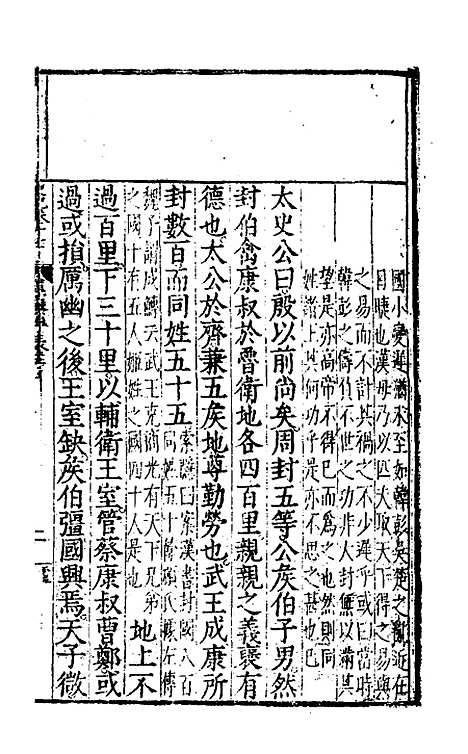 國小變逼猶未至如韓彭吳楚之禍近在
目睫也漢毋乃以四夫取天下得之易與
之易而不計其禍之不少遲乎或曰當時
韓彭之儔負不世之功非人封無以滿其
望是亦高帝不得已而為之也然則同
姓諸上其何功乎是亦不思之甚也已
太史公曰殷以前尚矣周封五等公侯伯子男然
封伯禽康叔於魯衛地各四百里親親之義襃有
德也太公於齊兼五侯地尊勤勞也武王成康所
封數百而同姓五十五
索隱曰案漢書封國八百
同姓五十餘顧氏據左傳
魏子謂成鱄云武王克商光有天下兄弟
之國十有五人姬姓之國四十人是也
地上不
過百里下三十里以輔衛王室管蔡康叔曹鄭或
過或損厲幽之後王室缺侯伯彊國興焉天子微
二